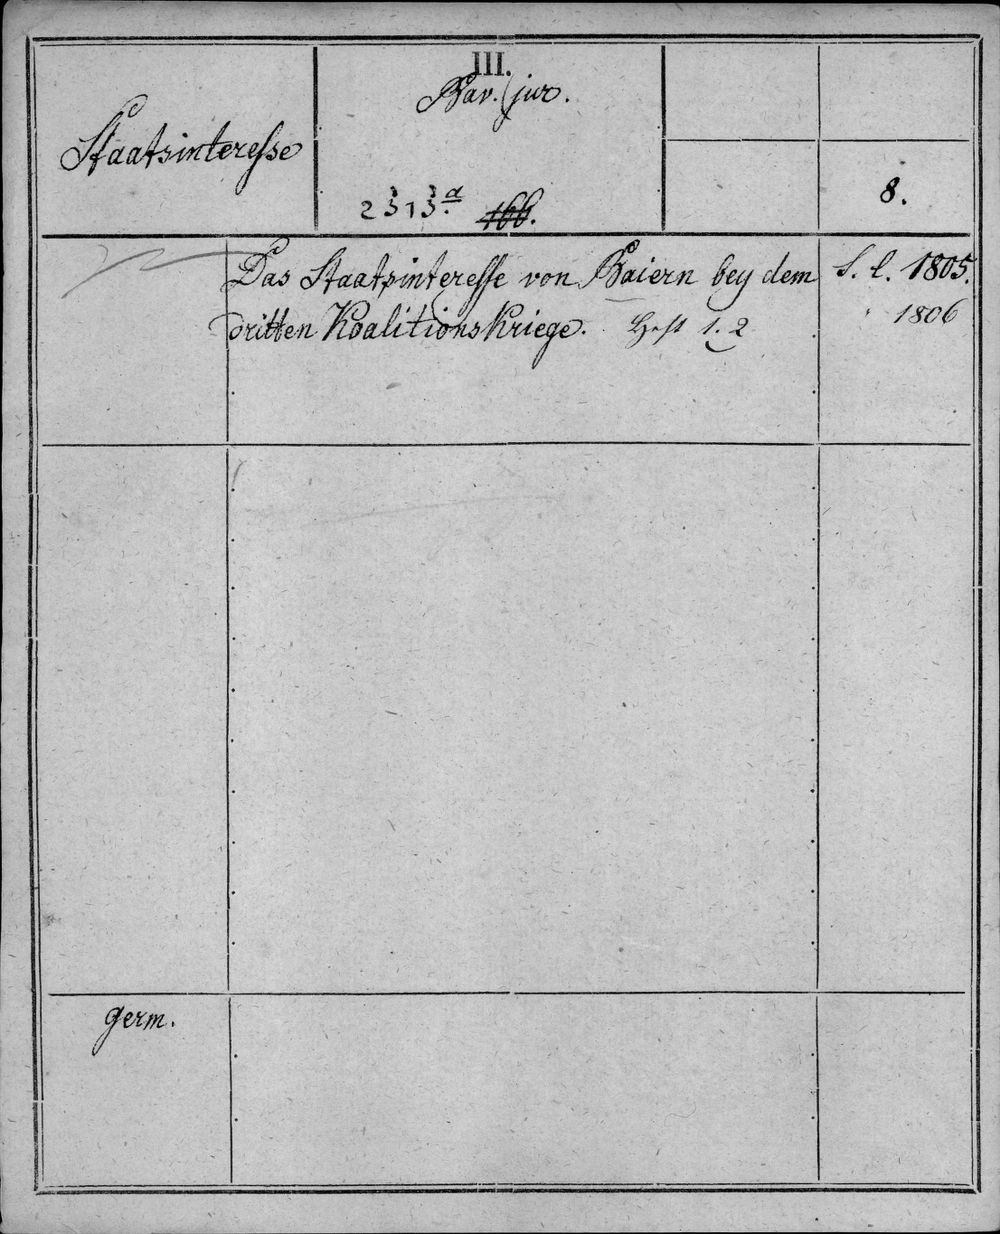 III.
Bav. jur.
Staatsinteresse
8.
2313 a. 166.
Das Staatsinteresse von Baiern bey dem S. l. 1805.
dritten Koalitionskriege. Heft 1. 2 1806
germ.